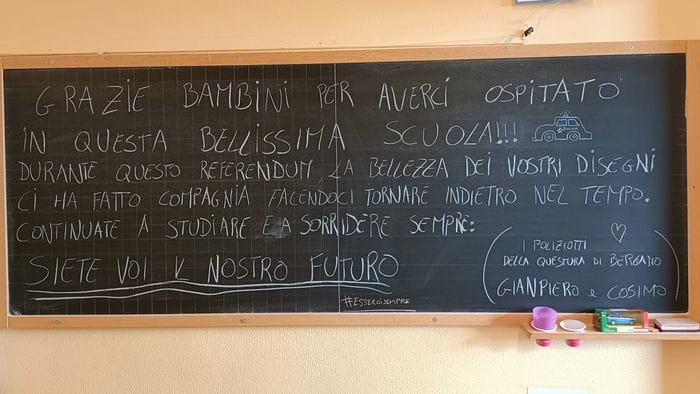 GRAZIE BAMBINI PER AVERCI OSPITATO
IN QUESTA BELLISSIMA SCUOLA!!!
DURANTE QUESTO REFERENDUM, LA BELLEZZA DEI VOSTRI DISEGNI
CI HA FATTO COMPAGNIA FACENDOCI TORNARE INDIETRO NEL TEMPO.
CONTINUATE A STUDIARE E A SORRIDERE SEMPRE:
SIETE VOI IL NOSTRO FUTURO
#ESSERCISEMPRE
I POLIZIOTTI
DELLA QUESTURA DI BERGAMO
GIANPIERO e COSIMO